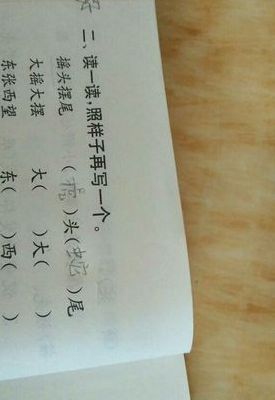 二、读一读,照样子再写一个。
摇头摆尾 (虎)头(蛇)尾
大摇大摆 大( )大( )
东张西望 东( )西( )